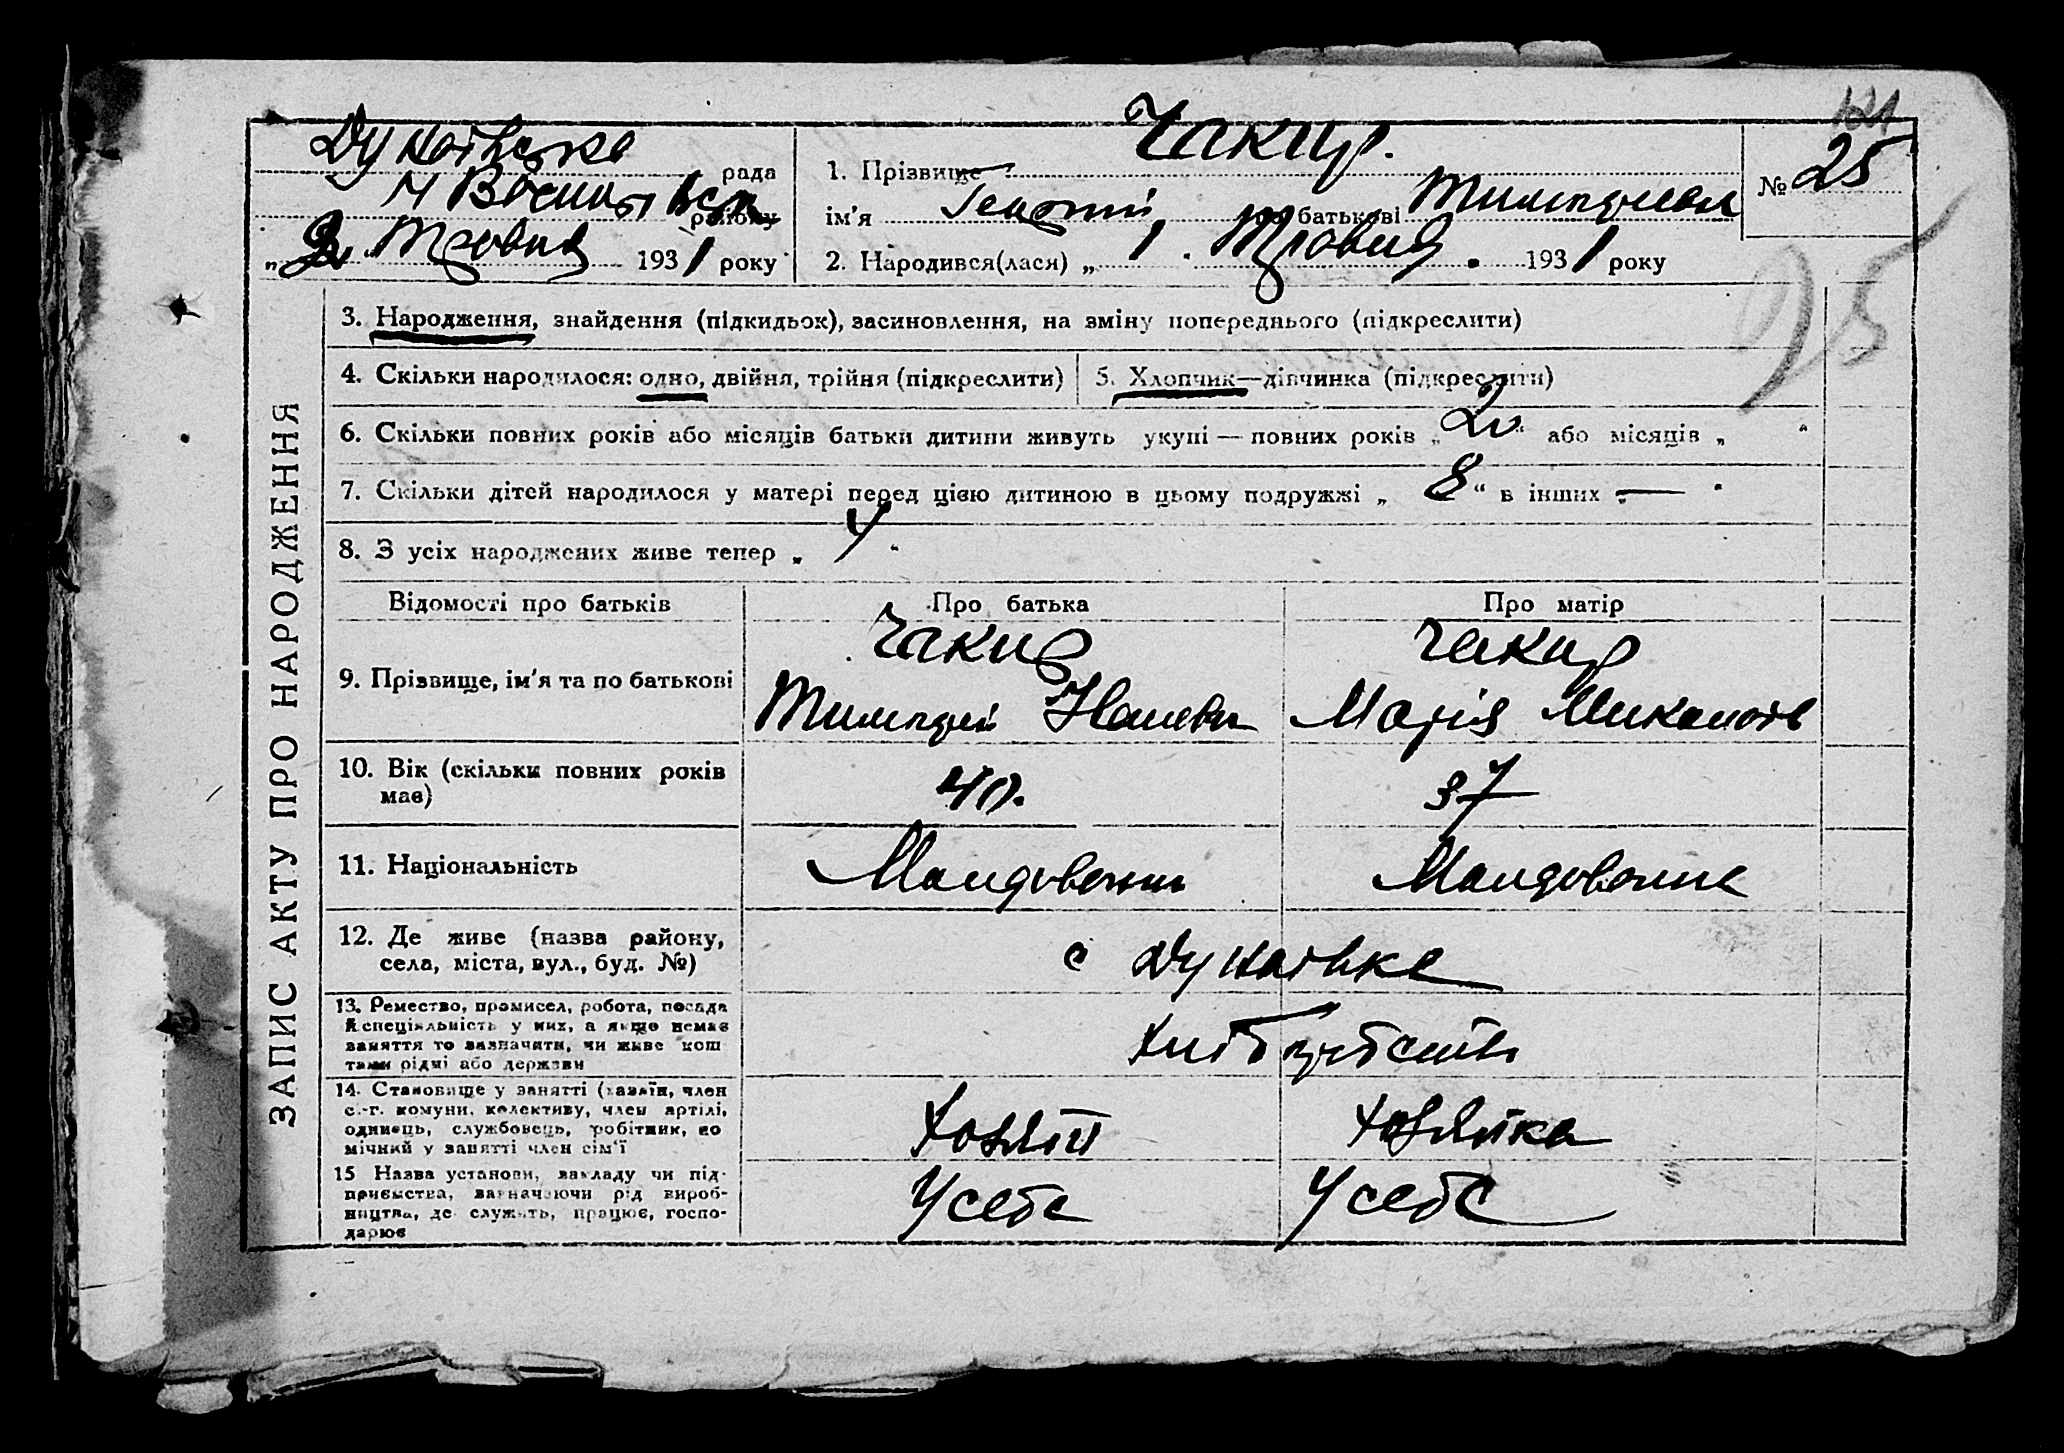 121
Дунаївська рада
Чакир.
1. Прізвище
№ 25
М Васильївськ району
ім'я Георгій по батькові Тимофієв
„2“ Травня 1931 року
2. Народився(лася) „1“ Травня 1931 року
25
ЗАПИС АКТУ ПРО НАРОДЖЕННЯ
3. Народження, знайдення (підкидьок), засиновлення, на зміну попереднього (підкреслити)
4. Скільки народилося: одно, двійня, трійня (підкреслити)
5. Хлопчик—дівчинка (підкреслити)
6. Скільки повних років або місяців батьки дитини живуть укупі — повних років „20“ або місяців „ “
7. Скільки дітей народилося у матері перед цією дитиною в цьому подружжі „8“ в інших „—“
8. З усіх народжених живе тепер „4“
Відомості про батьків
Про батька
Про матір
9. Прізвище, ім'я та по батькові
Чакир
Чакир
Тимофій
Марія
10. Вік (скільки повних років
має)
40.
37
11. Національність
Молдованин
Молдованка
12. Де живе (назва району,
села, міста, вул., буд. №)
с Дунаївка
13. Ремество, промисел, робота, посада
й спеціяльність у них, а якщо немає
заняття то зазначити, чи живе кош
тами рідні або держави
Хліборобство
14. Становище у занятті (хазяїн, член
с.-г. комуни, колективу, член артілі,
одинець, службовець, робітник, по
мічний у занятті член сім'ї
Хозяїн
Хозяйка
15 Назва установи, закладу чи під-
приємства, зазначаючи рід вироб-
ництва, де служить, працює, госпо-
дарює
У себе
У себе